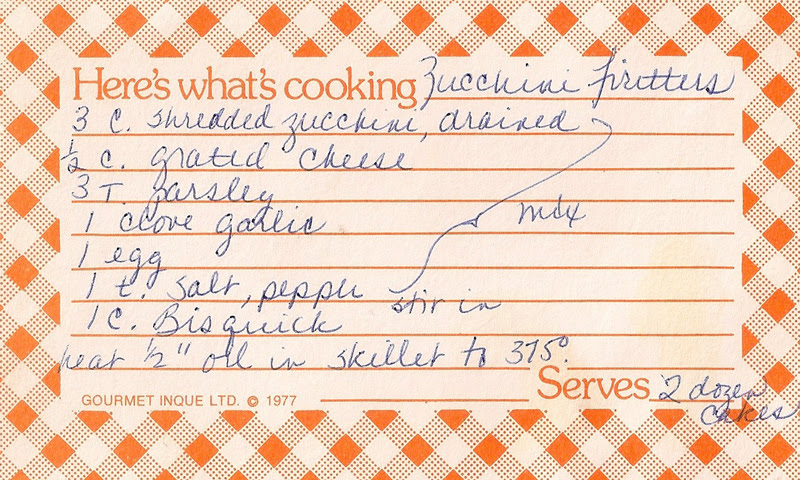 Here's what's cooking Zucchini Fritters
3 c. shredded zucchini, drained
1/2 c. grated cheese
3 T. parsley
1 clove garlic
mix
1 egg
1 t. salt, pepper
stir in
1 c. Bisquick
heat 1/2" oil in skillet to 375°.
Serves 2 dozen cakes
GOURMET INQUE LTD. © 1977